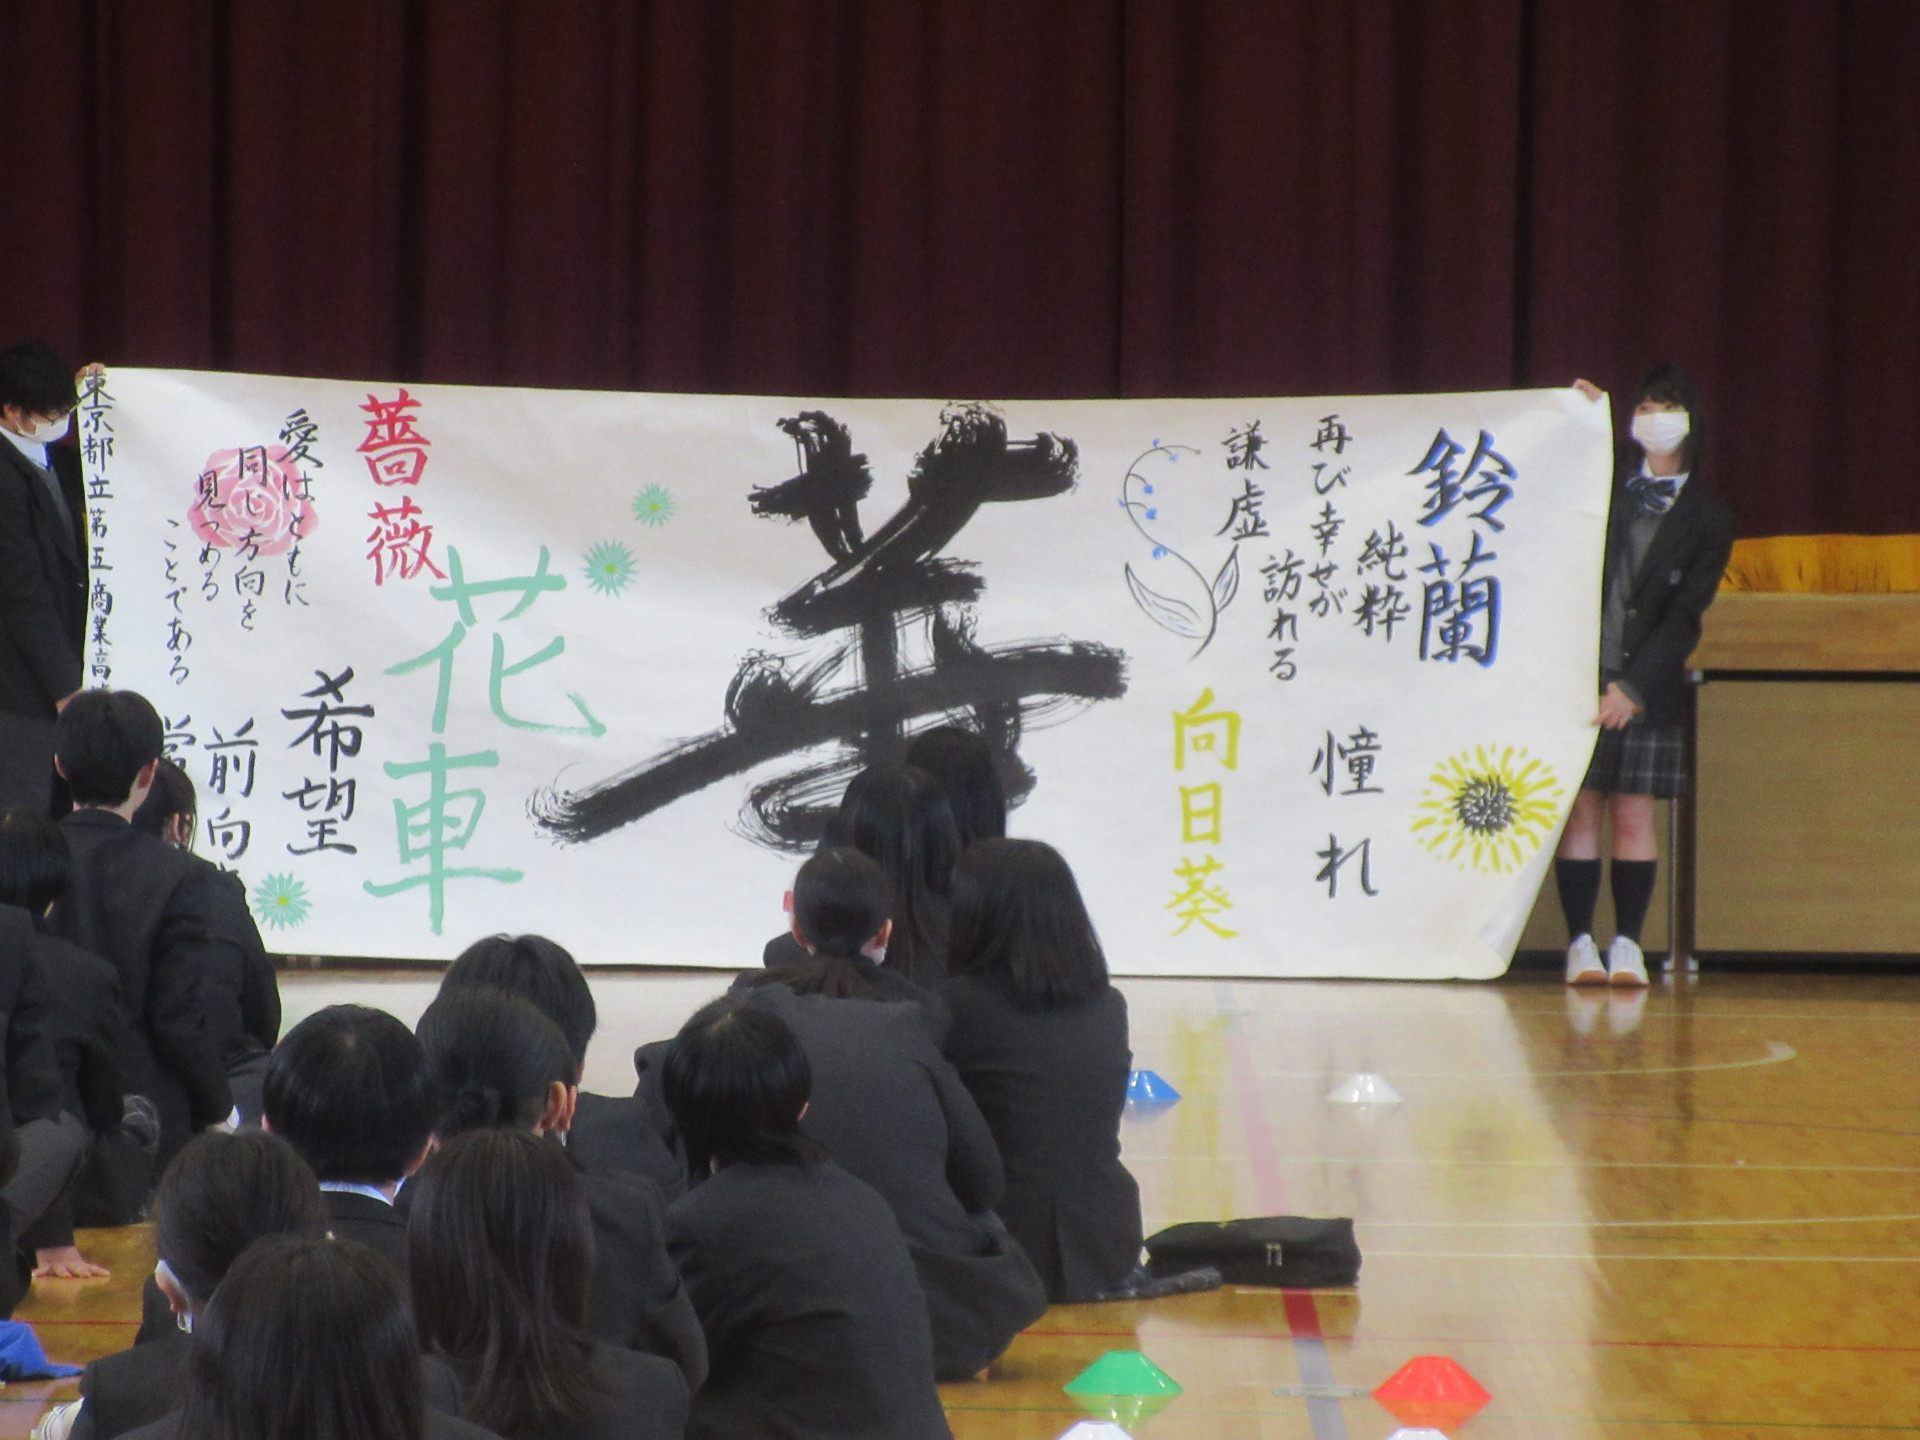 鈴蘭
純粋
再び幸せが
訪れる
謙虚
憧れ
向日葵
華
薔薇
花車
愛はともに
同じ方向を
見つめる
ことである
希望
前向
常
東京都立第五商業高